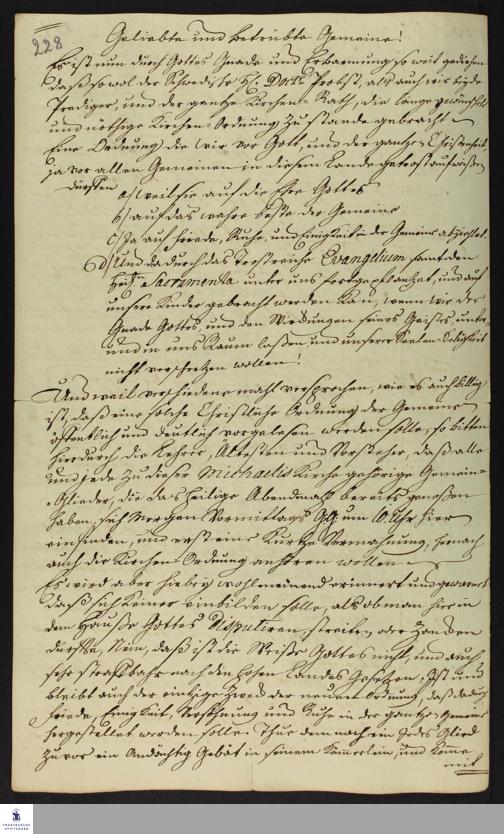 228
Geliebte und betrübte Gemeine!
Es ist nun durch Gottes Gnade und Erbarmung so weit gediehen
daß so wol der Schwedische H. Probst, als auch wir beyde
Prediger, und der gantze Kirchen-Rath, die lange gewünschte
und nöthige Kirchen-Ordnung zu stande gebracht
Eine Ordnung die wir vor Gott, und der gantzen Christenheit,
ja vor allen Gemeinen in diesem Lande getrost aufweisen
dürften a, weil sie auf die Ehre Gottes
b, auf das wahre beste der Gemeine
c, Ja auf Friede, Ruhe, und Einigkeit in der Gemeine abzielet.
d, Und da durch das Trostreiche Evangelium samt den
Heil. Sacramenta unter uns fortgepflantzet, und auf
unsere Kinder gebracht werden kan, wenn wir der
Gnade Gottes, und den Würckungen seines Geistes, unter
und in uns Raum laßen, und unsere Seelen-Seligkeit
nicht verschertzen wollen!
Und weil verschiedene mahl versprochen, wie es auch billig
ist, daß eine solche Christliche Ordnung der Gemeine
öffentlich und deutlich vorgelesen werden solle, so bitten
hierdurch die Lehrer, Ältesten und Vorsteher, daß alle
und jede zu dieser Michaelis Kirche gehörige Gemein-
Glieder, die das heilige Abendmahl bereits genoßen
haben, sich Morgen Vormittags um 10 Uhr hier
einfinden, und erst eine kurtze Vermahnung, hernach
auch die Kirchen-Ordnung anhören wollen
Es wird aber hiebey wohlmeinend erinnert und gewarnet
daß sich keiner einbilden solle, als ob man hier in
dem Hauße Gottes Disputiren, streiten oder Zancken
dürffte, Nein, daß ist die Weiße Gottes nicht, und auch
sehr straffbahr nach den hohen Landes Gesetzen, Ist und
bleibt auch der eintzige Zweck der neuen Ordnung, daß dadurch
Friede, Einigkeit, Versöhnung und Ruhe in der gantzen Gemeine
hergestellet werden solle. Thue demnach ein Jedes Glied
zuvor ein Andächtig Gebät in seinem Kämmerlein, und komme
mit
FRANCKESCHE STIFTUNGEN